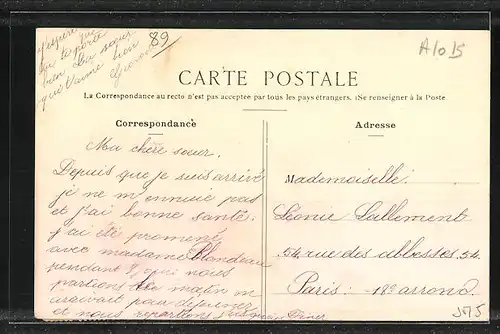 J'espère que
tu te porte
bien. ta sœur
qui t'aime bien
89
A1015
CARTE POSTALE
La Correspondance au recto n'est pas acceptée par tous les pays étrangers. (Se renseigner à la Poste
Correspondance
Ma chère sœur.
Depuis que je suis arrivé
je ne m'ennuie pas
et j'ai bonne santé.
j'ai été promené
avec madame Blondeau
pendant qui nous
partions le matin
arrivait pour déjeuner
et nous repartions
Adresse
Mademoiselle.
Léonie Lallement
54 rue des abbesses. 54.
Paris: 18e arrond.